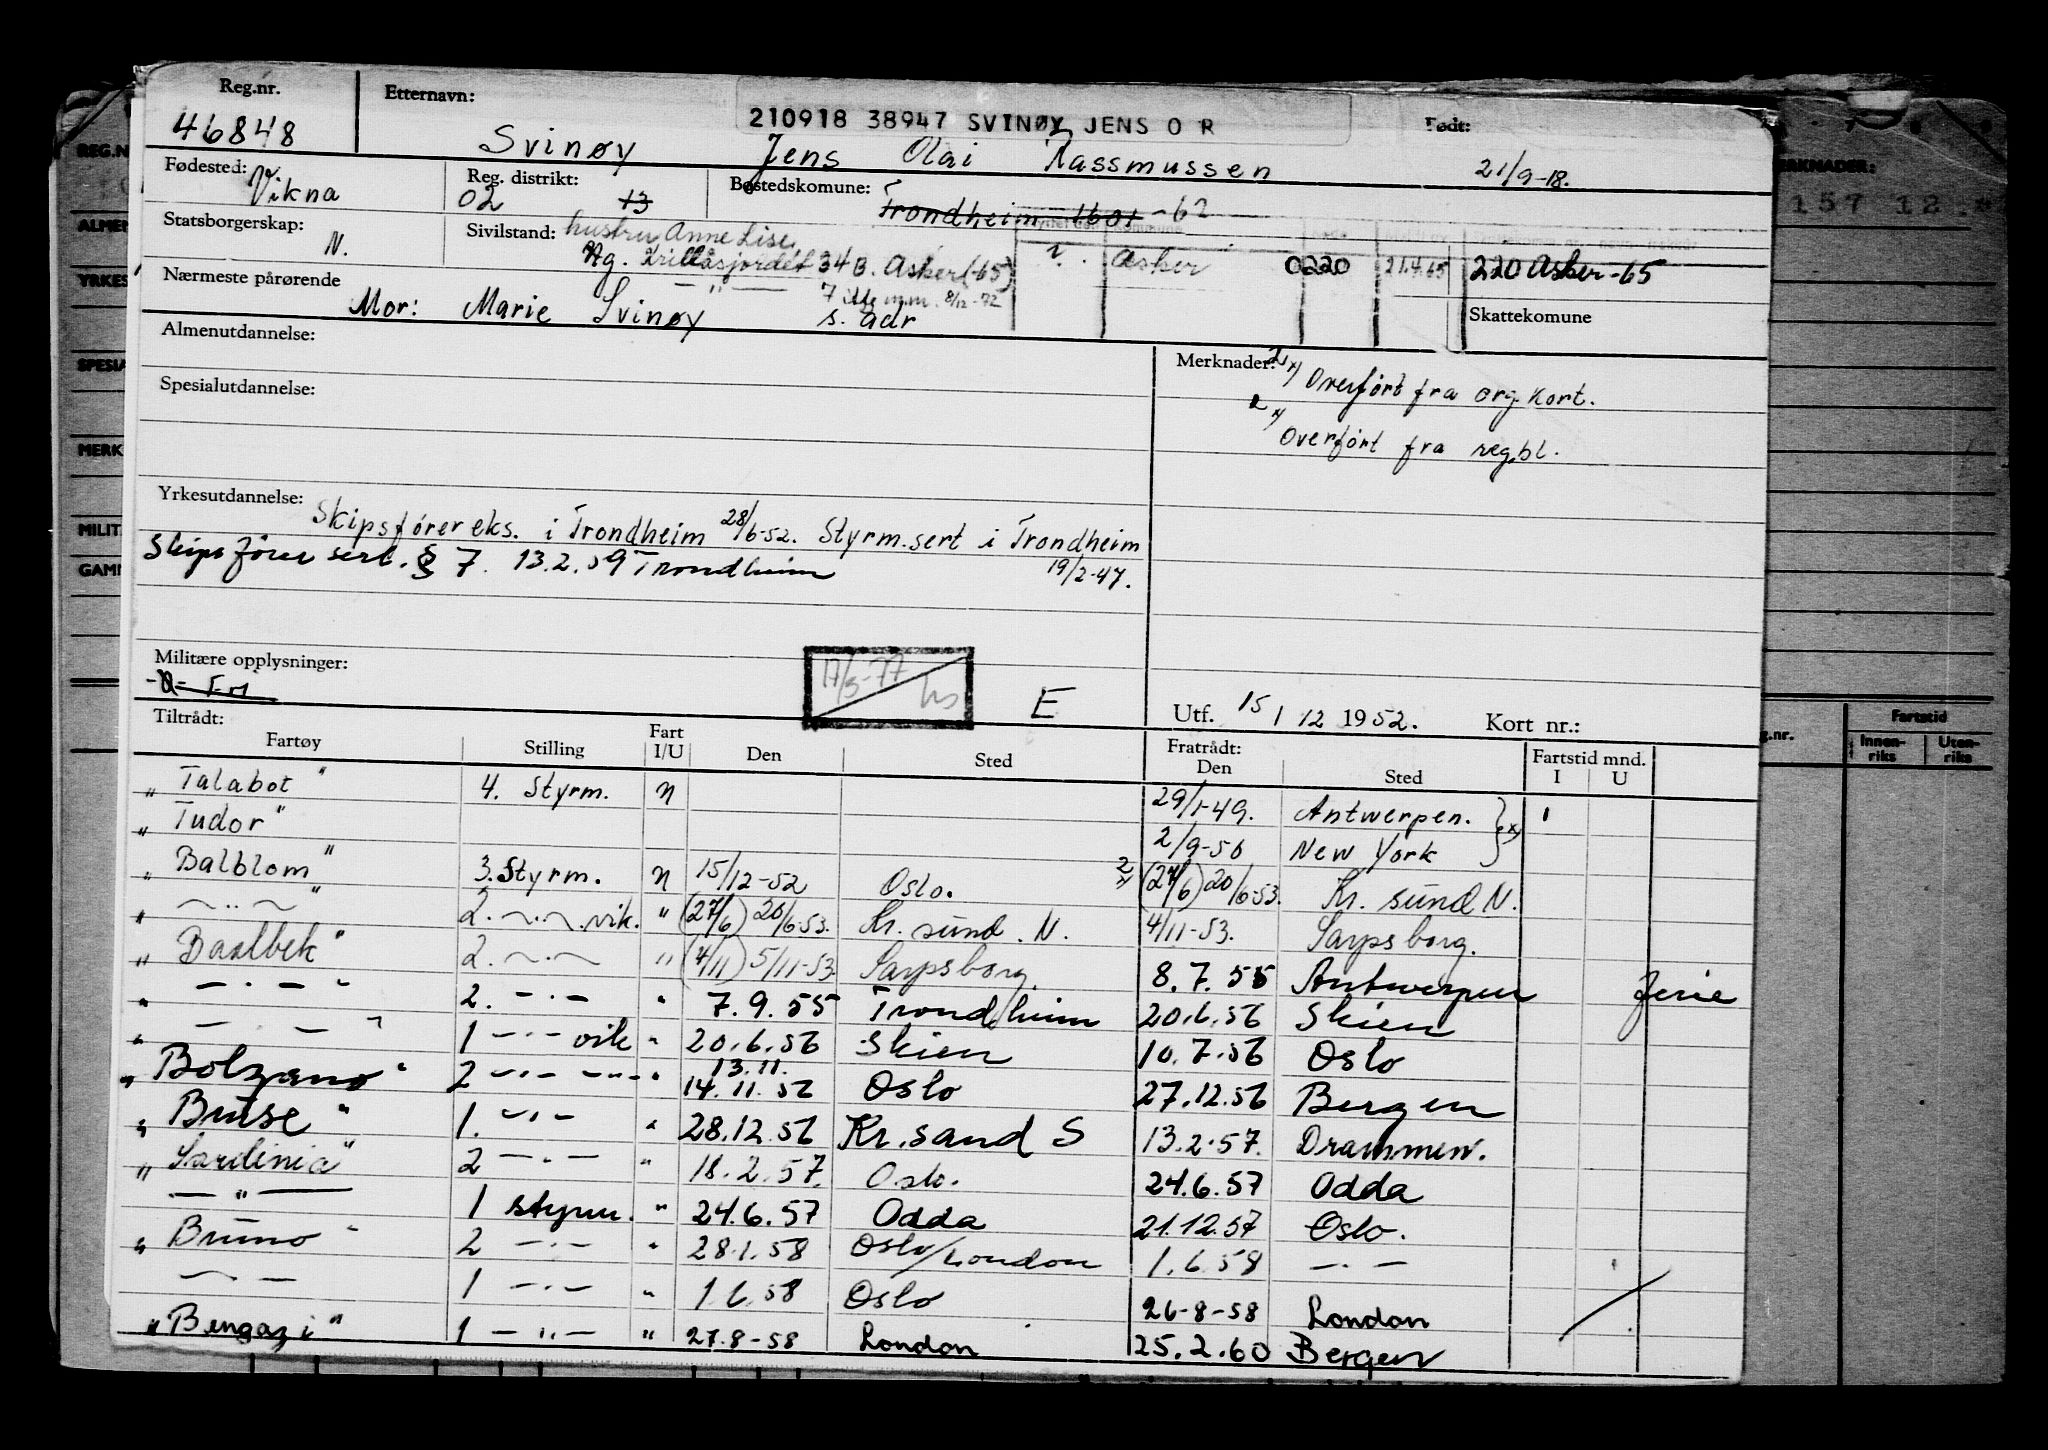 Reg.nr. Etternavn: 210918 38947 SVINØY JENS O R Født:
46848 Svinøy Jens Olai Rassmussen 21/9-18.
Fødested: Vikna Reg. distrikt: 02 13 Bostedskomune: Trondheim 1601 -62
Statsborgerskap: N. Sivilstand: hustru Anne Lise
34 B. Asker (-65) Asker 0220 21.4.65 220 Asker-65
Nærmeste pårørende Mor: Marie Svinøy s. adr Skattekomune
8/12-72
Almenutdannelse: Merknader:
2 x) Overført fra org. kort.
Spesialutdannelse:
x) Overført fra reg.bl.
Yrkesutdannelse: Skipsfører eks. i Trondheim 28/6-52. Styrm.sert i Trondheim 19/2-47.
Skipsfører sert. § 7. 13.2.59 Trondheim
Militære opplysninger:
E Utf. 15 / 12 1952. Kort nr.:
Tiltrådt: Fratrådt: Fartstid mnd.
Fartøy Stilling Fart I/U Den Sted Den Sted I U
" Talabot " 4. Styrm. n 29/1-49. Antwerpen. } x)
" Tudor " 2/9-50 New York
" Balblom " 3. Styrm. n 15/12-52 Oslo. 2 x) (27/6) 20/6-53. Kr. sund N.
" — " — " 2. — " — vik. " (27/6) 20/6-53. Kr. sund. N. 4/11-53. Sarpsborg.
" Baalbek " 2. — " — " (4/11) 5/11-53. Sarpsborg 8.7.55 Antwerpen Ferie
" — " — " 2. — " — " 7.9.55 Trondheim 20.6.56 Skien
" — " — " 1 — " — vik " 20.6.56 Skien 10.7.56 Oslo
" Bolzano " 2 — " — " 13.11. 14.11.56 Oslo 27.12.56 Bergen
" Bruse " 1. — " — " 28.12.56 Kr.sand S 13.2.57. Drammen.
" Sardinia " 2 — " — " 18.2.57. Oslo. 24.6.57 Odda
— " — 1 styrm. " 24.6.57 Odda 21.12.57 Oslo.
" Bruno " 2 — " — " 28.1.58 Oslo/London 1.6.58 — " —
— " — 1 — " — " 1.6.58 Oslo 26-8-58 London
" Bengazi " 1 — " — " 27.8-58 London 25.2.60 Bergen
REG.N
ALMEN
YRKES
SPESIA
MERK
MILIT
GAM
ERKNADER:
157 12
g.nr. Fartstid
Innen-riks Uten-riks